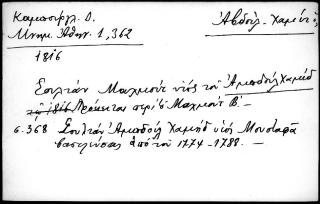 Καμπούρογλ. Δ.
Μνημ. Ἀθην. 1, 362
Ἀβδούλ-Χαμὶτ
1816
Σουλτάν Μαχμούτ υἱός τοῦ Ἀμπδούλ Χαμίδ
τῷ 1816 Πρόκειται περὶ Μαχμούτ Β΄. —
σ. 368 Σουλτάν Ἀμπδούλ Χαμήδ υἱός Μουσταφᾶ
βασιλεύσας ἀπό τοῦ 1774-1788. —